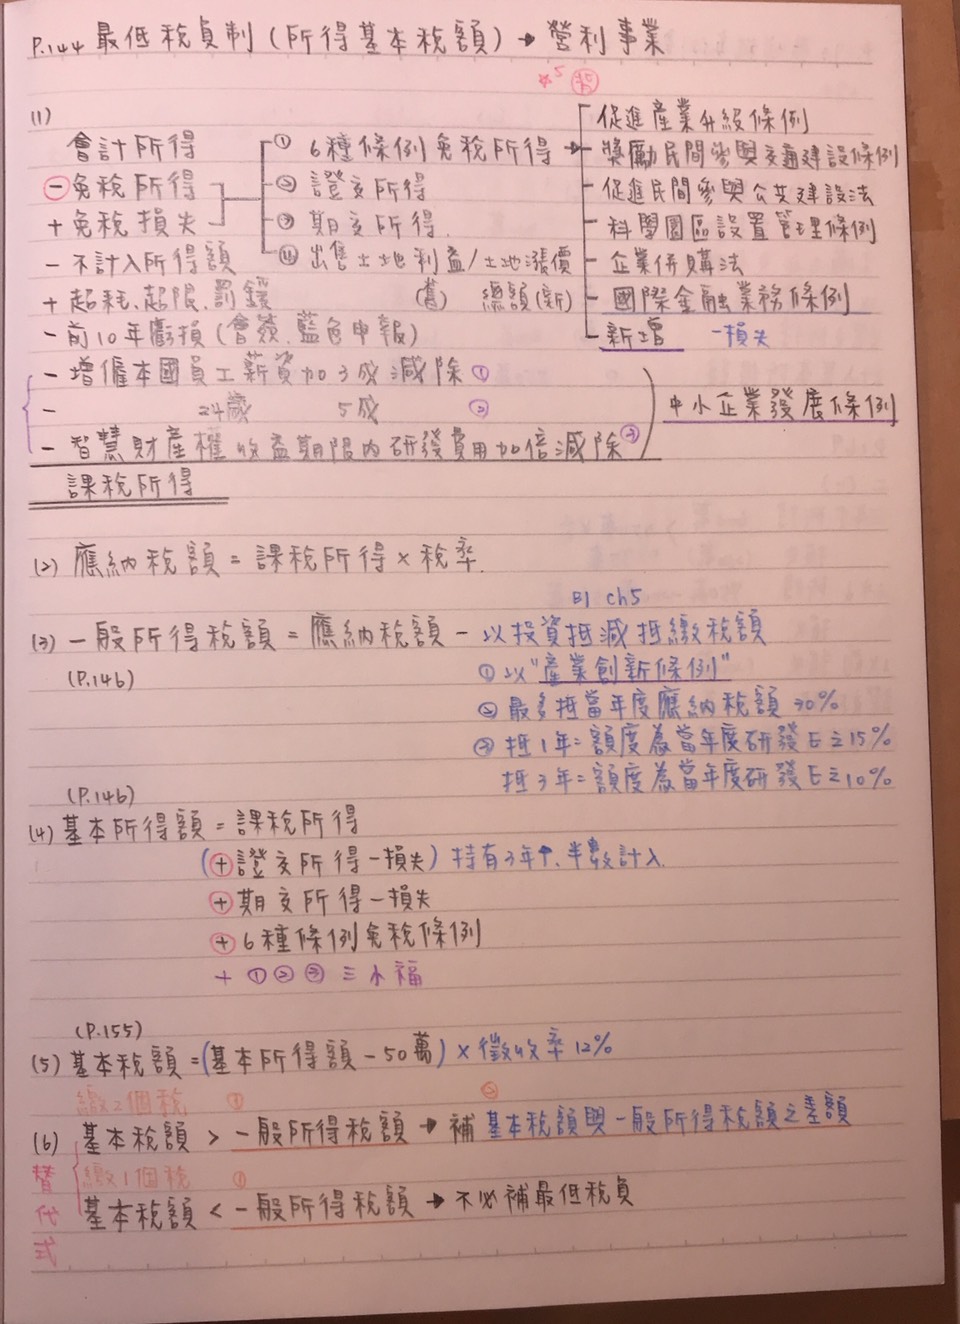 P.144 最低稅負制(所得基本稅額)→營利事業
☆5
(1)
會計所得
－免稅所得
＋免稅損失
－不計入所得額
＋超耗、超限、罰鍰
－前10年虧損(會簽、藍色申報)
－增僱本國員工薪資加3成減除①
－ 24歲 5成 ②
－智慧財產權收益期限內研發費用加倍減除③
中小企業發展條例
課稅所得
① 6種條例免稅所得→
② 證交所得
③ 期交所得
④ 出售土地利益/土地漲價
(舊) 總額(新)
促進產業升級條例
獎勵民間參與交通建設條例
促進民間參與公共建設法
科學園區設置管理條例
企業併購法
國際金融業務條例
新增 －損失
(2) 應納稅額＝課稅所得×稅率.
B1 ch5
(3) 一般所得稅額＝應納稅額－以投資抵減抵繳稅額
(P.146)
①以"產業創新條例"
②最多抵當年度應納稅額30%
③抵1年＝額度為當年度研發E之15%
抵3年＝額度為當年度研發E之10%
(P.146)
(4) 基本所得額＝課稅所得
(＋證交所得－損失) 持有3年↑, 半數計入.
＋期交所得－損失
＋6種條例免稅條例
＋①②③三小福
(P.155)
(5) 基本稅額＝(基本所得額－50萬)×徵收率12%
繳2個稅 ① ②
(6) 基本稅額＞一般所得稅額→補基本稅額與一般所得稅額之差額
替代式
繳1個稅 ①
基本稅額＜一般所得稅額→不必補最低稅負